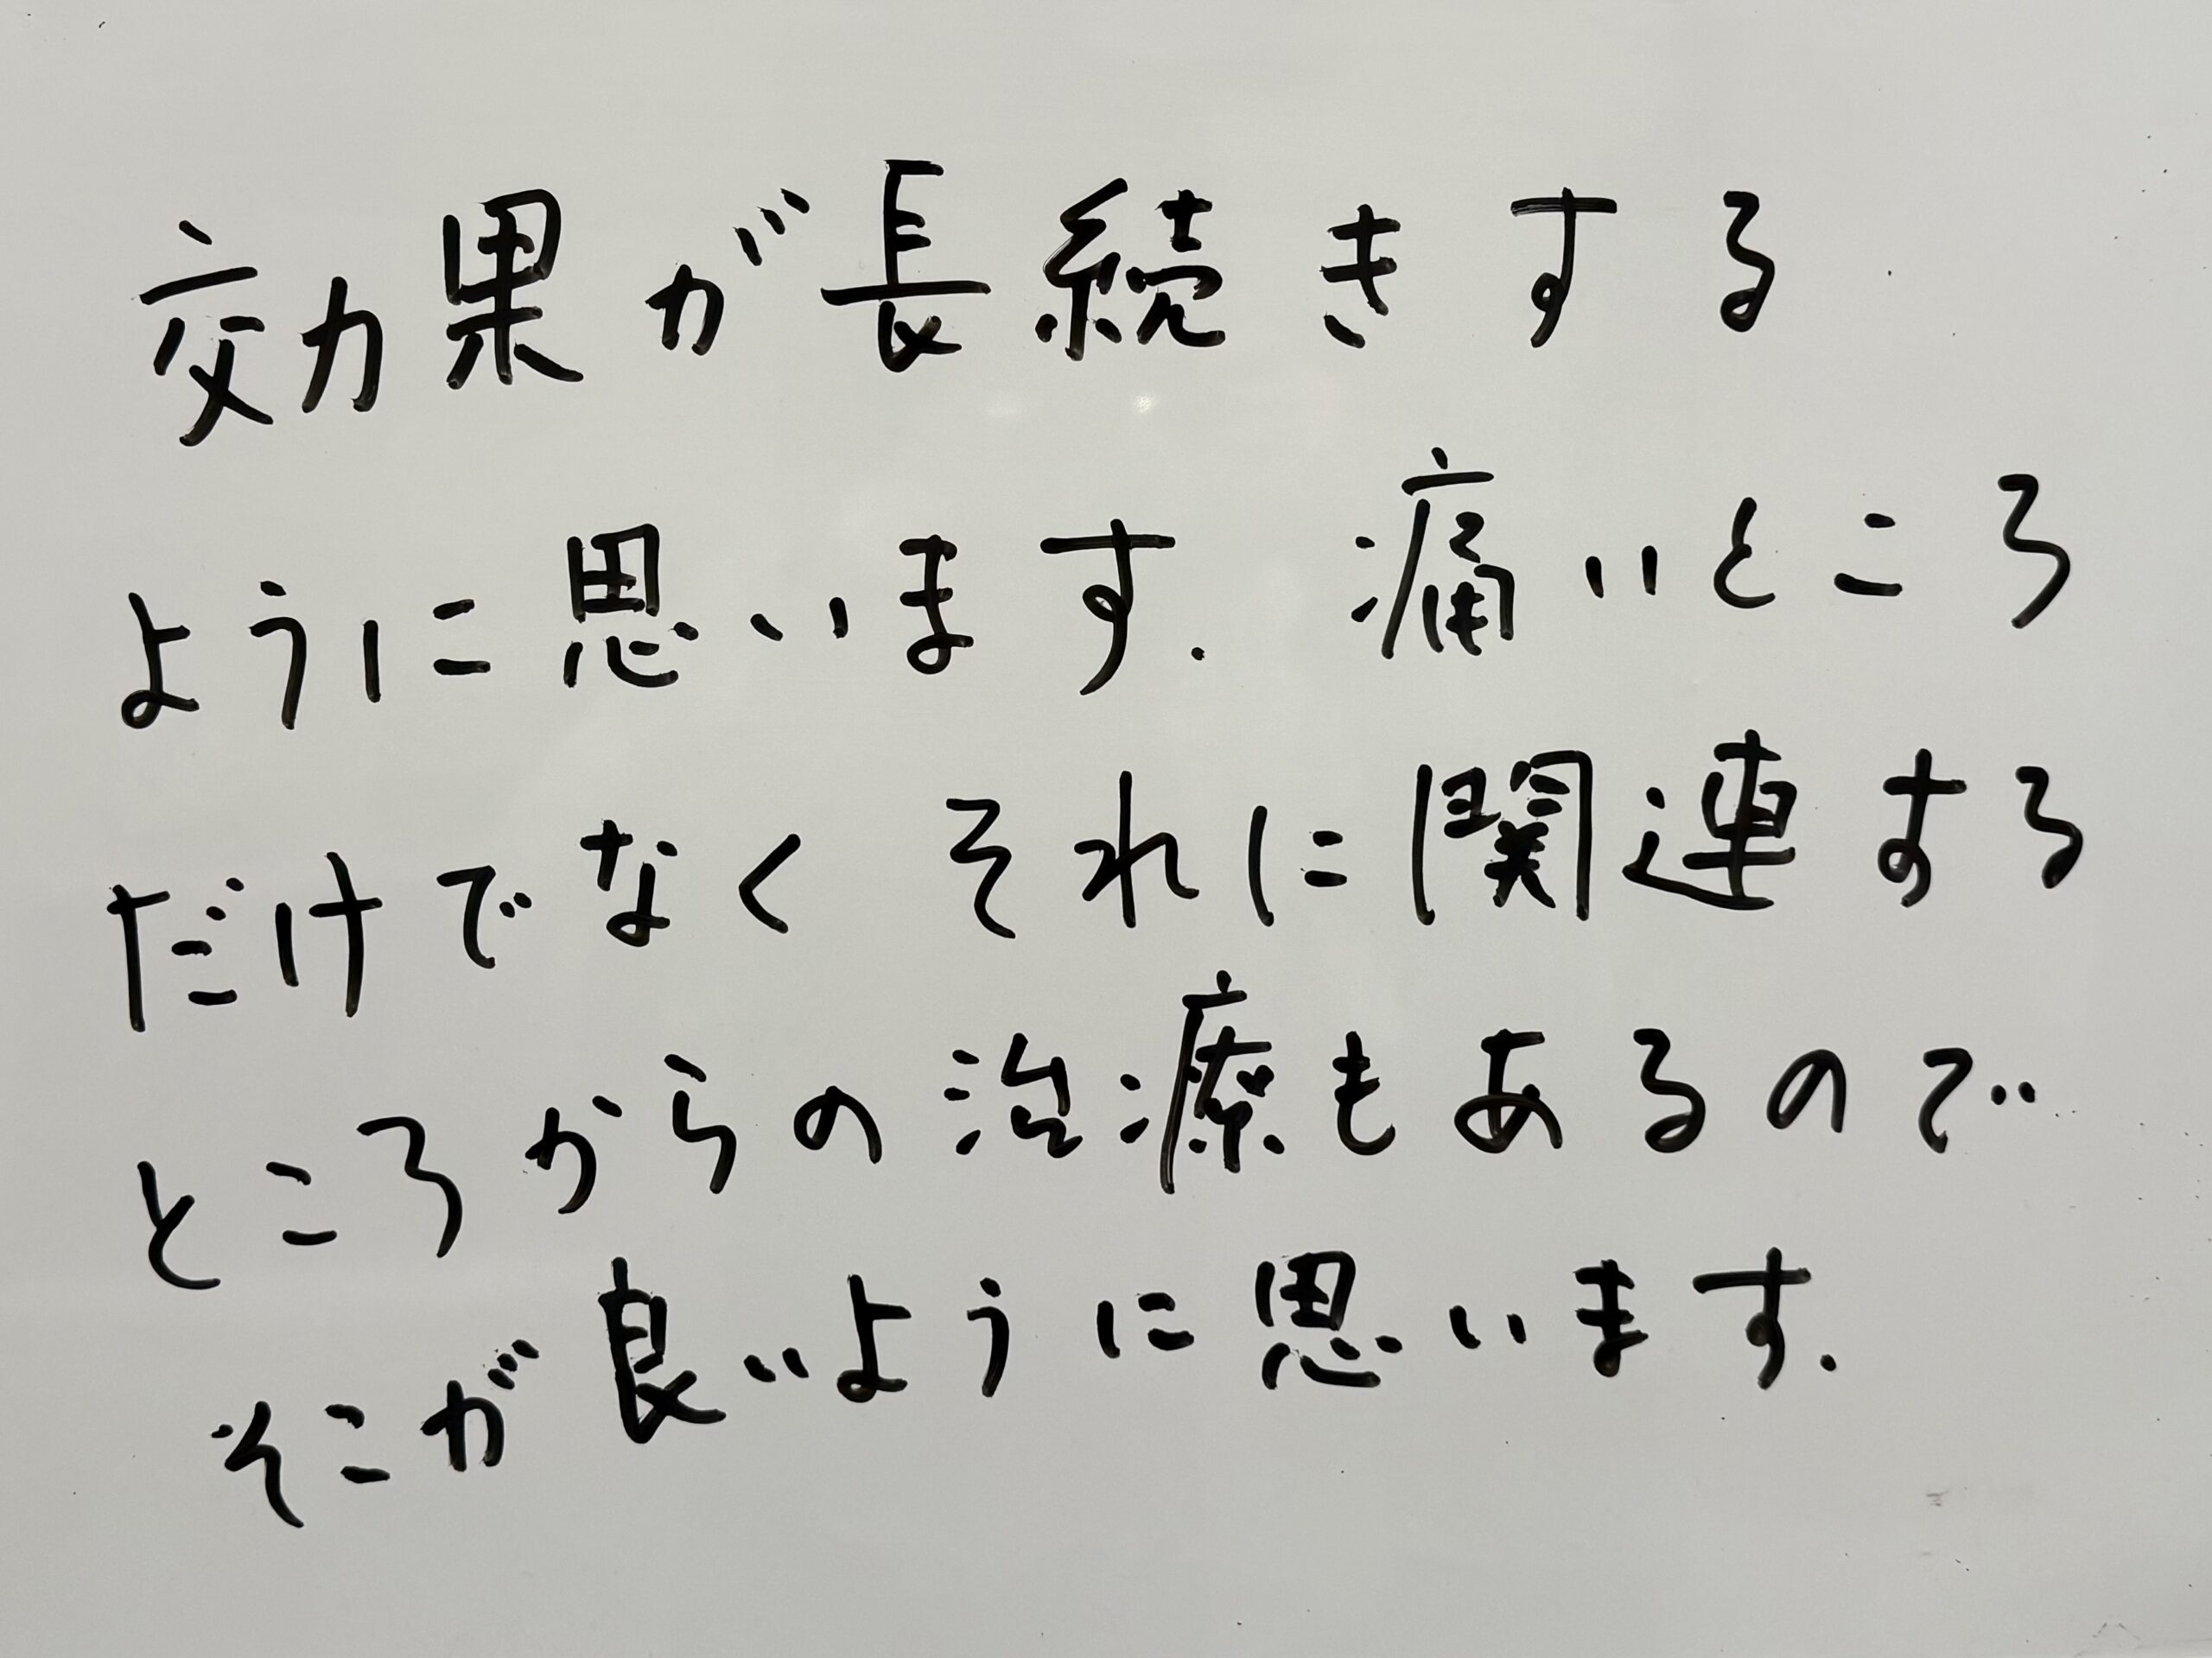 効果が長続きする
ように思います. 痛いところ
だけでなく それに関連する
ところからの治療もあるので
そこが良いように思います.